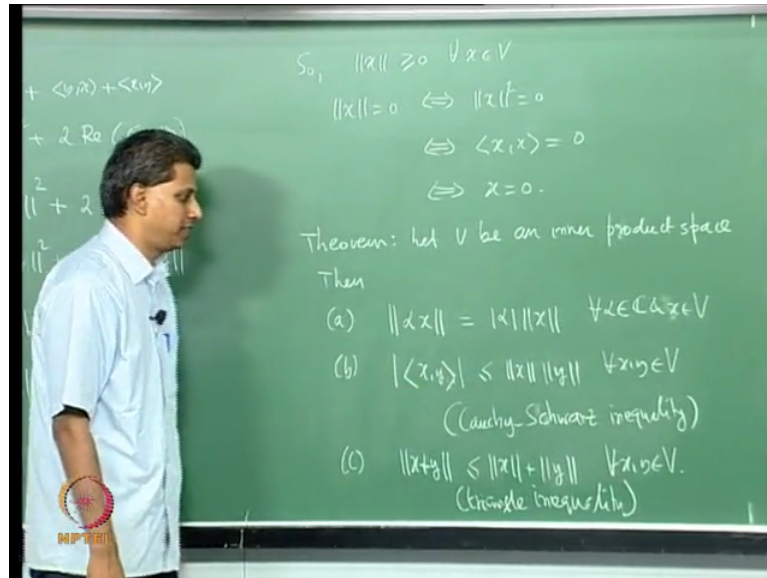 + <y,x> + <x,y>
+ 2 Re (
||² + 2
So, ||x|| ≥ 0 ∀ x ∈ V
||x|| = 0 ⟺ ||x||² = 0
⟺ <x,x> = 0
⟺ x = 0.
Theorem: Let V be an inner product space
Then
(a) ||αx|| = |α| ||x|| ∀ α ∈ ℂ & x ∈ V
(b) |<x,y>| ≤ ||x|| ||y|| ∀ x,y ∈ V
(Cauchy-Schwarz inequality)
(c) ||x+y|| ≤ ||x|| + ||y|| ∀ x,y ∈ V.
(triangle inequality)
NPTEL